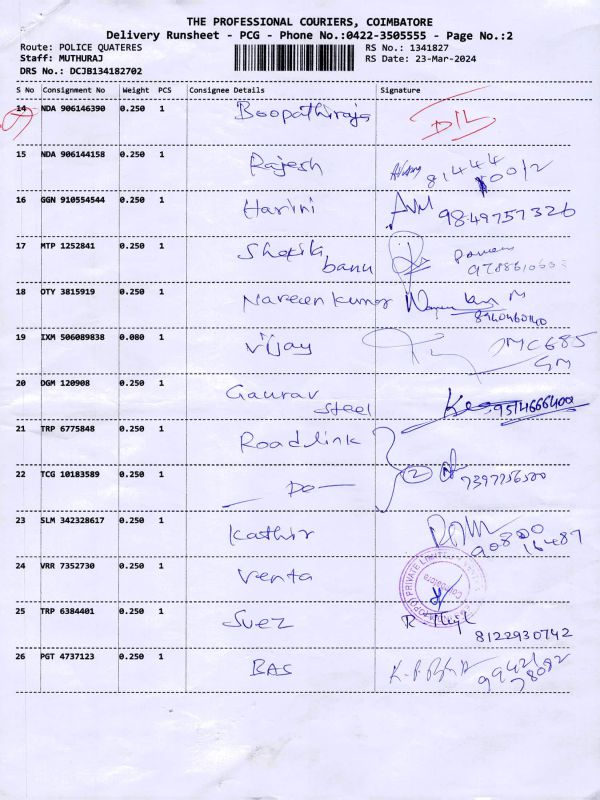 THE PROFESSIONAL COURIERS, COIMBATORE
Delivery Runsheet - PCG - Phone No.:0422-3505555 - Page No.:2
Route: POLICE QUATERES RS No.: 1341827
Staff: MUTHURAJ RS Date: 23-Mar-2024
DRS No.: DCJB134182702
S No Consignment No Weight PCS Consignee Details Signature
14 NDA 906146390 0.250 1 Boopathiraja D/L
15 NDA 906144158 0.250 1 Rajesh 81444
16 GGN 910554544 0.250 1 Harini 9849757326
17 MTP 1252841 0.250 1 Shefik
banu
18 OTY 3815919 0.250 1 Nareen kumar
8940460140
19 IXM 506089838 0.080 1 Vijay JMC685
GM
20 DGM 120908 0.250 1 Gaurav
steel 9514666400
21 TRP 6775848 0.250 1 Roadlink
22 TCG 10183589 0.250 1 — Do — 2
23 SLM 342328617 0.250 1 Kathir
24 VRR 7352730 0.250 1 Venta
25 TRP 6384401 0.250 1 Suez
8122930742
26 PGT 4737123 0.250 1 BAS